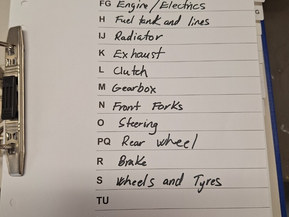 FG Engine/Electrics
H Fuel tank and lines
IJ Radiator
K Exhaust
L Clutch
M Gearbox
N Front Forks
O Steering
PQ Rear wheel
R Brake
S Wheels and Tyres
TU